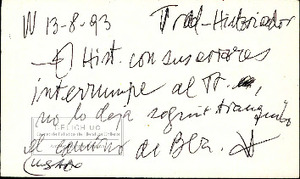 W 13-8-93 Trad-Historiador
Hist. con sus errores
interrumpe al Tr.
no lo deja seguir tranquilo
el camino de Bea.